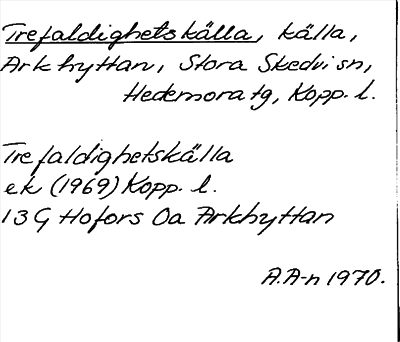 Trefaldighetskälla, källa,
Arkhyttan, Stora Skedvi sn,
Hedemora tg, Kopp. l.
Trefaldighetskälla
ek (1969) Kopp. l.
13 G Hofors 0a Arkhyttan
A.A-n 1970.